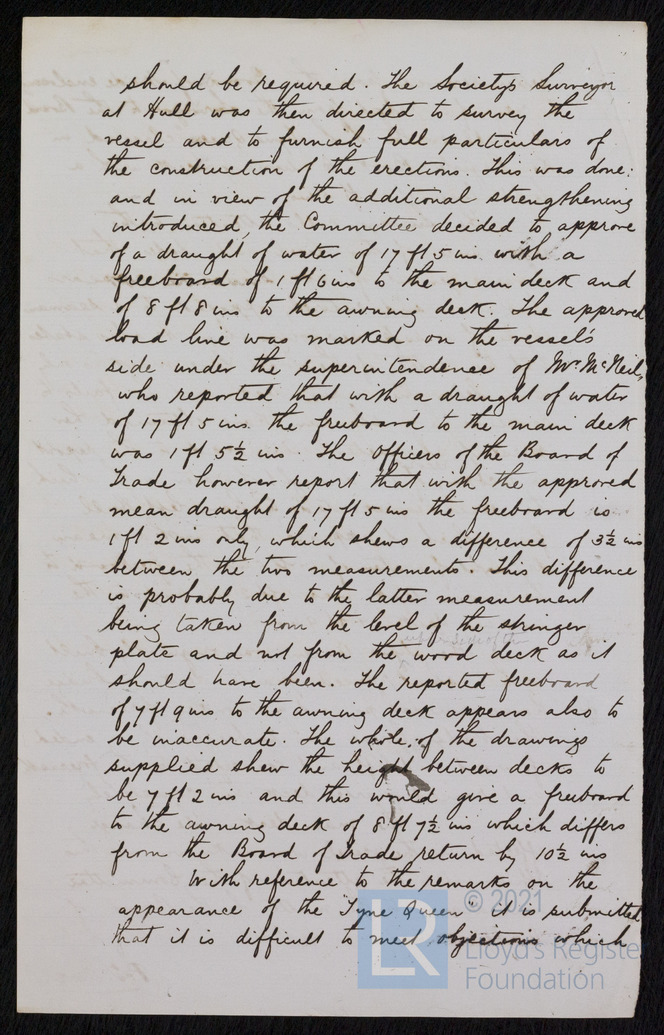 should be required. The Society's Surveyor
at Hull was then directed to survey the
vessel and to furnish full particulars of
the construction of the erections. This was done:
and in view of the additional strengthening
introduced, the Committee decided to approve
of a draught of water of 17 ft 5 ins with a
freeboard of 1 ft 6 ins to the main deck and
of 8 ft 8 ins to the awning deck. The approved
load line was marked on the vessel's
side under the superintendence of Mr. McNeil,
who reported that with a draught of water
of 17 ft 5 ins the freeboard to the main deck
was 1 ft 5½ ins. The Officers of the Board of
Trade however report that with the approved
mean draught of 17 ft 5 ins the freeboard is
1 ft 2 ins only, which shews a difference of 3½ ins
between the two measurements. This difference
is probably due to the latter measurement
being taken from the level of the stringer
plate and not from the wood deck as it
should have been. The reported freeboard
of 7 ft 9 ins to the awning deck appears also to
be inaccurate. The whole of the drawings
supplied shew the height between decks to
be 7 ft 2 ins and this would give a freeboard
to the awning deck of 8 ft 7½ ins which differs
from the Board of Trade return by 10½ ins
With reference to the remarks on the
appearance of the "Tyne Queen" it is submitted
that it is difficult to meet objections which
© 2021
LR
Lloyd's Register
Foundation